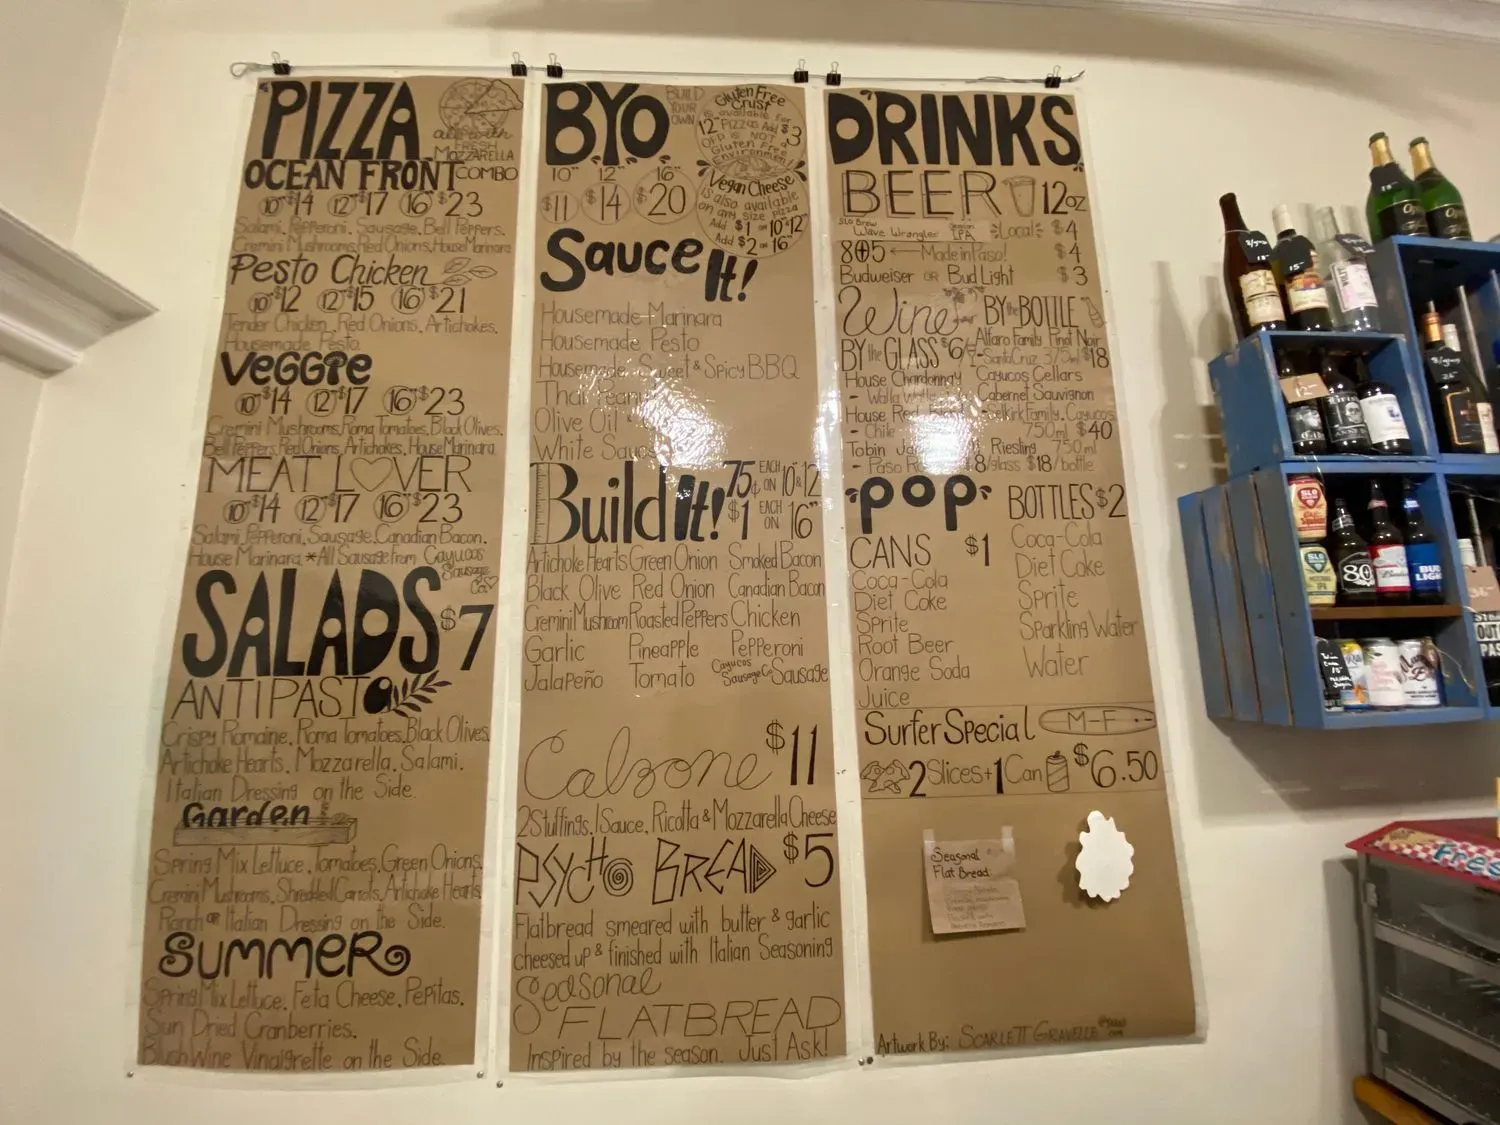 PIZZA
all with
FRESH
MOZZARELLA
OCEAN FRONT COMBO
10" $14 12" $17 16" $23
Salami, Pepperoni, Sausage, Bell Peppers,
Cremini Mushrooms, Red Onions, House Marinara
Pesto Chicken
10" $12 12" $15 16" $21
Tender Chicken, Red Onions, Artichokes,
Housemade Pesto
Veggie
10" $14 12" $17 16" $23
Cremini Mushrooms, Roma Tomatoes, Black Olives,
Bell Peppers, Red Onions, Artichokes, House Marinara
MEAT LOVER
10" $14 12" $17 16" $23
Salami, Pepperoni, Sausage, Canadian Bacon,
House Marinara *All Sausage from Cayucos
Sausage
Co.
SALADS $7
ANTIPASTO
Crispy Romaine, Roma Tomatoes, Black Olives,
Artichoke Hearts, Mozzarella, Salami,
Italian Dressing on the Side.
Garden
Spring Mix Lettuce, Tomatoes, Green Onions,
Cremini Mushrooms, Shredded Carrots, Artichoke Hearts
Ranch or Italian Dressing on the Side.
SUMMER
Spring Mix Lettuce, Feta Cheese, Pepitas,
Sun Dried Cranberries.
Blush Wine Vinaigrette on the Side.
BYO
BUILD
YOUR
OWN
10" 12" 16"
$11 $14 $20
Gluten Free
Crust
is available for
12" Pizzas Add $3
OFP is NOT a
Gluten Free
Environment!
Vegan Cheese
is also available
on any size pizza
Add $1 on 10" 12"
Add $2 on 16"
Sauce It!
Housemade Marinara
Housemade Pesto
Housemade Sweet & Spicy BBQ
Thai Peanut
Olive Oil
White Sauce
Build It! 75¢ EACH ON 10" & 12"
$1 EACH ON 16"
Artichoke Hearts Green Onion Smoked Bacon
Black Olive Red Onion Canadian Bacon
Cremini Mushroom Roasted Peppers Chicken
Garlic Pineapple Pepperoni
Jalapeño Tomato Cayucos Sausage Co. Sausage
Calzone $11
2 Stuffings, 1 Sauce, Ricotta & Mozzarella Cheese
PSYCHO BREAD $5
Flatbread smeared with butter & garlic
cheesed up & finished with Italian Seasoning
Seasonal
FLATBREAD
Inspired by the season. Just Ask!
DRINKS
BEER 12oz
SLO Brew
Wave Wrangler IPA Local $4
805 Made in Paso! $4
Budweiser OR Bud Light $3
Wine BY the BOTTLE
BY the GLASS $6
House Chardonnay
- Walla Walla
House Red
- Chile
Tobin Riesling 750ml
- Paso $8/glass $18/bottle
Alfaro Family Pinot Noir
- Santa Cruz 375ml $18
Cayucos Cellars
Cabernet Sauvignon
- Selkirk Family, Cayucos
750ml $40
POP BOTTLES $2
CANS $1
Coca-Cola
Diet Coke
Sprite
Root Beer
Orange Soda
Juice
Coca-Cola
Diet Coke
Sprite
Sparkling Water
Water
Surfer Special M-F
2 Slices + 1 Can $6.50
Seasonal
Flat Bread:
Artwork By: SCARLETT GRAVELLE
SLO
SLO
805
BUD
LIGHT
OUT
Fres